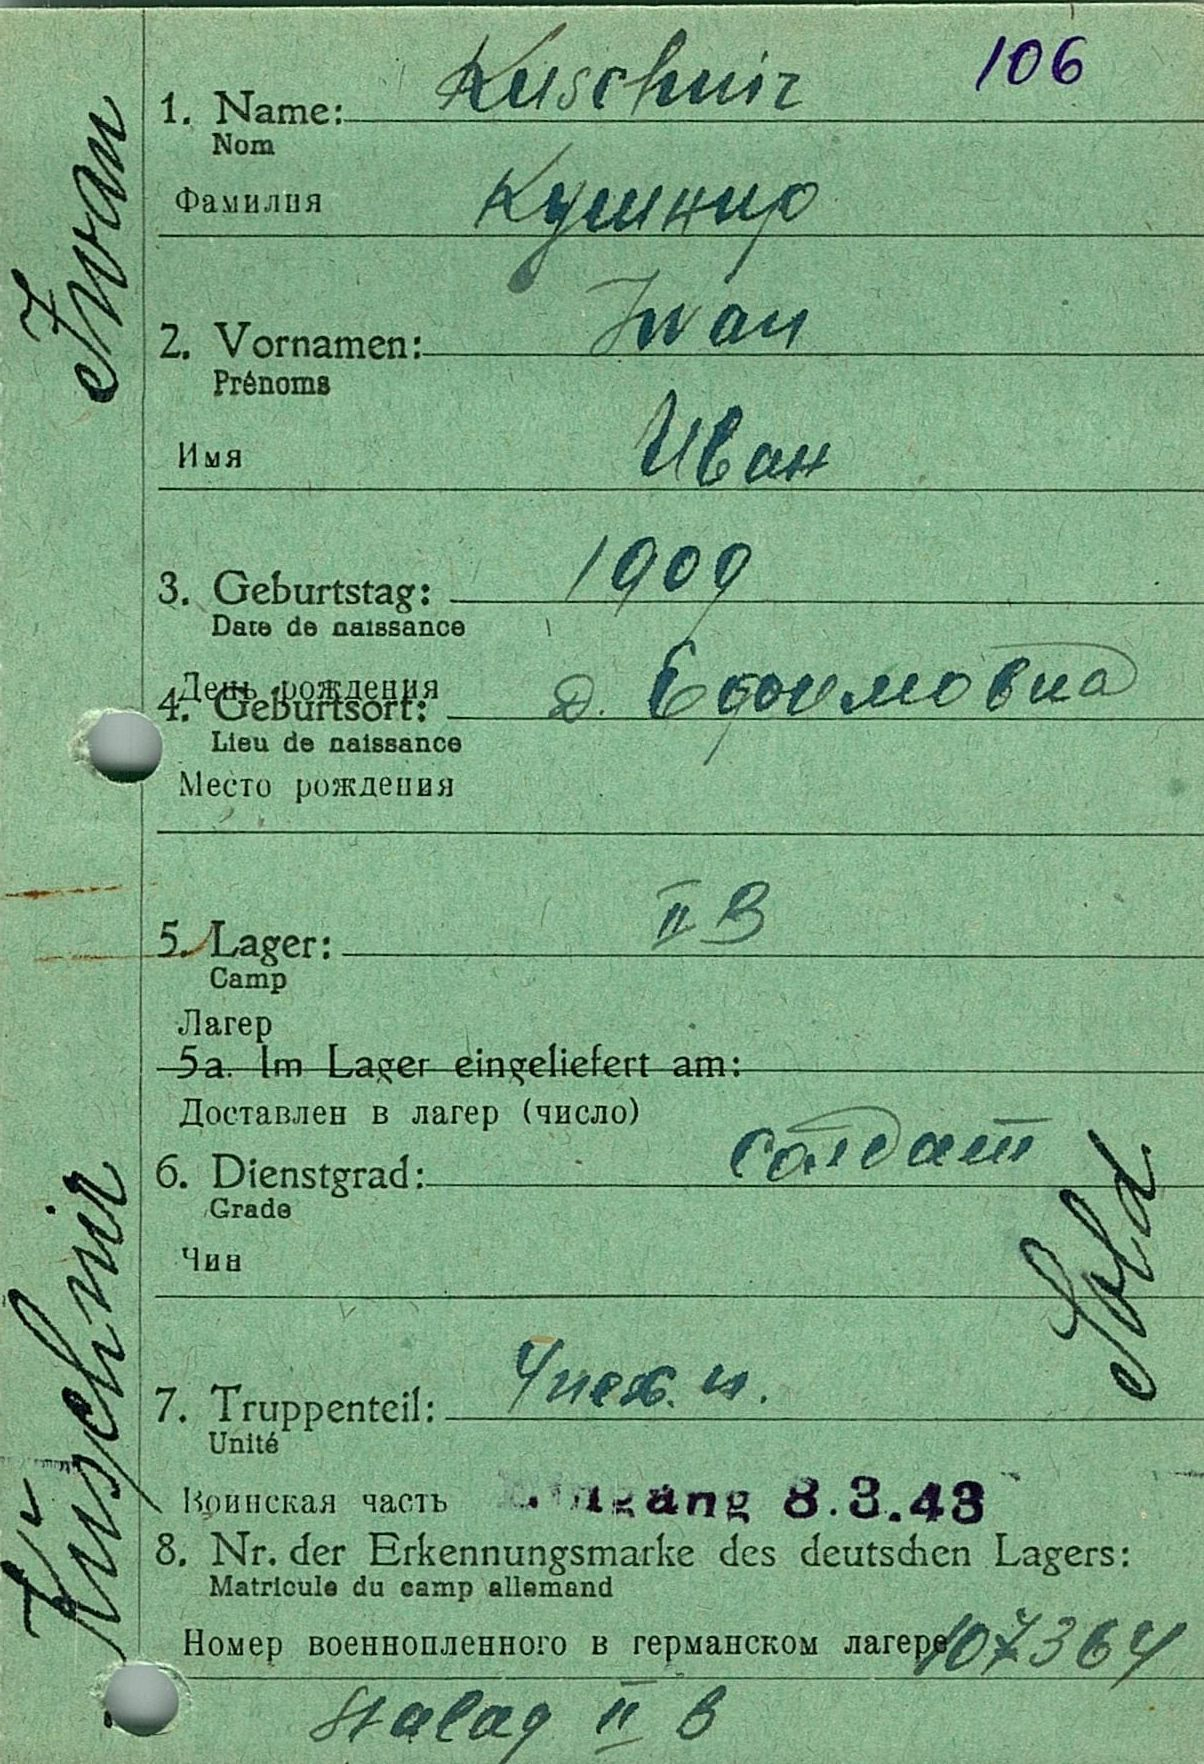 106
1. Name: Kuschnir
Nom
Фамилия Кушнир
2. Vornamen: Iwan
Prénoms
Имя Иван
3. Geburtstag: 1909
Date de naissance
День рождения
4. Geburtsort: д. Ефимовка
Lieu de naissance
Место рождения
5. Lager: II B
Camp
Лагер
5a. Im Lager eingeliefert am:
Доставлен в лагер (число)
6. Dienstgrad: солдат
Grade
Чин
Sold
7. Truppenteil:
Unité
Воинская часть Eingang 8.3.43
8. Nr. der Erkennungsmarke des deutschen Lagers:
Matricule du camp allemand
Номер военнопленного в германском лагере 107364
Stalag II B
Kuschnir Iwan